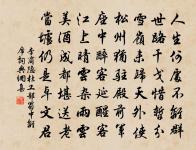 人生何處不離群
世路干戈惜暫分
雪嶺未歸天外使
松州猶駐殿前軍
座中醉客延醒客
江上晴雲雜雨雲
美酒成都堪送老
當壚仍是卓文君
李商隱杜工部蜀中離
席詞典網集